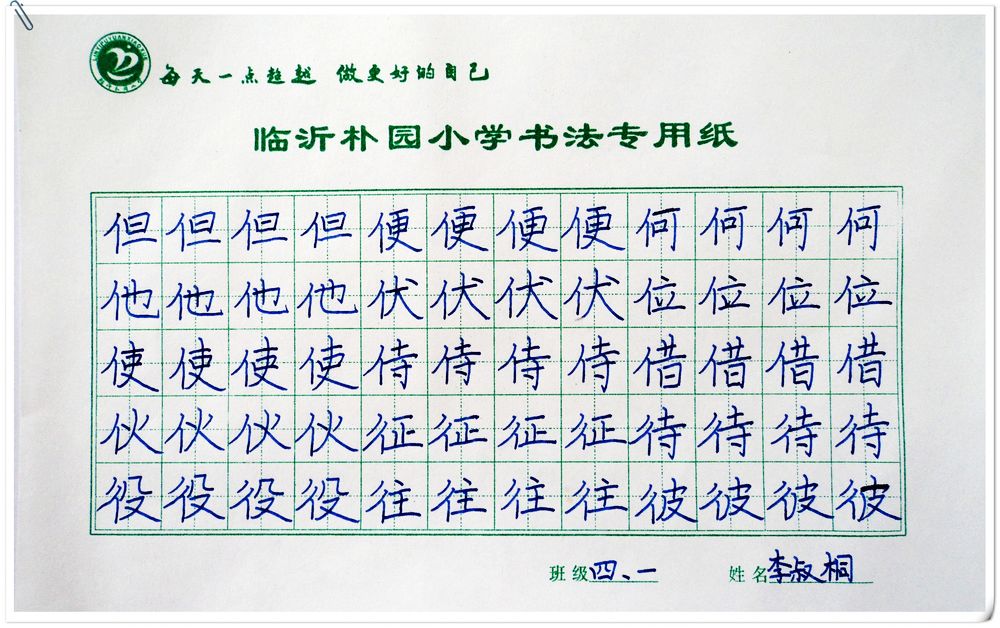 每天一点超越 做更好的自己
临沂朴园小学书法专用纸
但但但但便便便便何何何何
他他他他伏伏伏伏位位位位
使使使使侍侍侍侍借借借借
伙伙伙伙征征征征待待待待
役役役役往往往往彼彼彼彼
班级四、一 姓名李叔桐